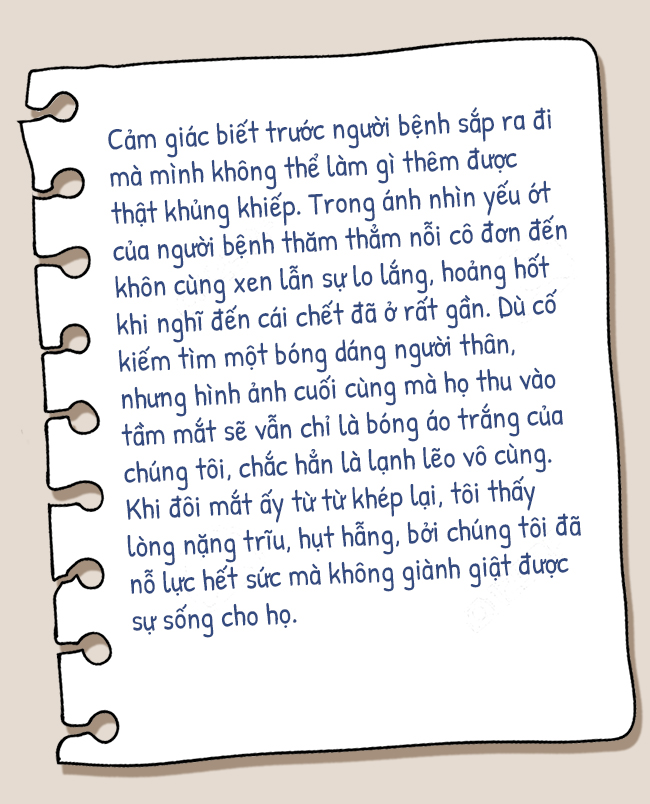 Cảm giác biết trước người bệnh sắp ra đi
mà mình không thể làm gì thêm được
thật khủng khiếp. Trong ánh nhìn yếu ớt
của người bệnh thăm thẳm nỗi cô đơn đến
khôn cùng xen lẫn sự lo lắng, hoảng hốt
khi nghĩ đến cái chết đã ở rất gần. Dù cố
kiếm tìm một bóng dáng người thân,
nhưng hình ảnh cuối cùng mà họ thu vào
tầm mắt sẽ vẫn chỉ là bóng áo trắng của
chúng tôi, chắc hẳn là lạnh lẽo vô cùng.
Khi đôi mắt ấy từ từ khép lại, tôi thấy
lòng nặng trĩu, hụt hẫng, bởi chúng tôi đã
nỗ lực hết sức mà không giành giật được
sự sống cho họ.